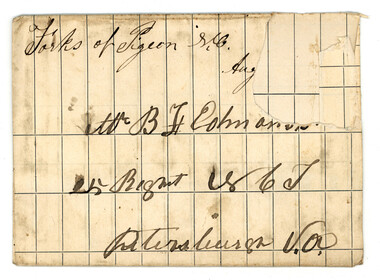 Forks of Pigeon N.C.
Aug
Mr B F Edmon
25 Regmt N C T
Petersburgh V.a.